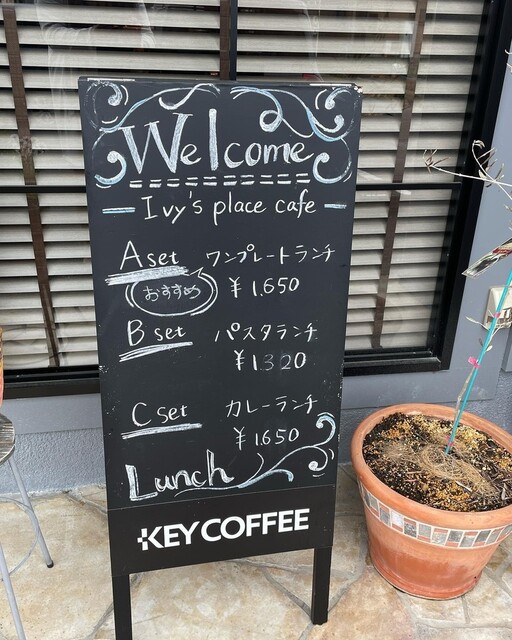 Welcome
Ivy's place cafe
A set ワンプレートランチ
おすすめ ¥1.650
B set パスタランチ
¥1.320
C set カレーランチ
¥1650
Lunch
KEY COFFEE